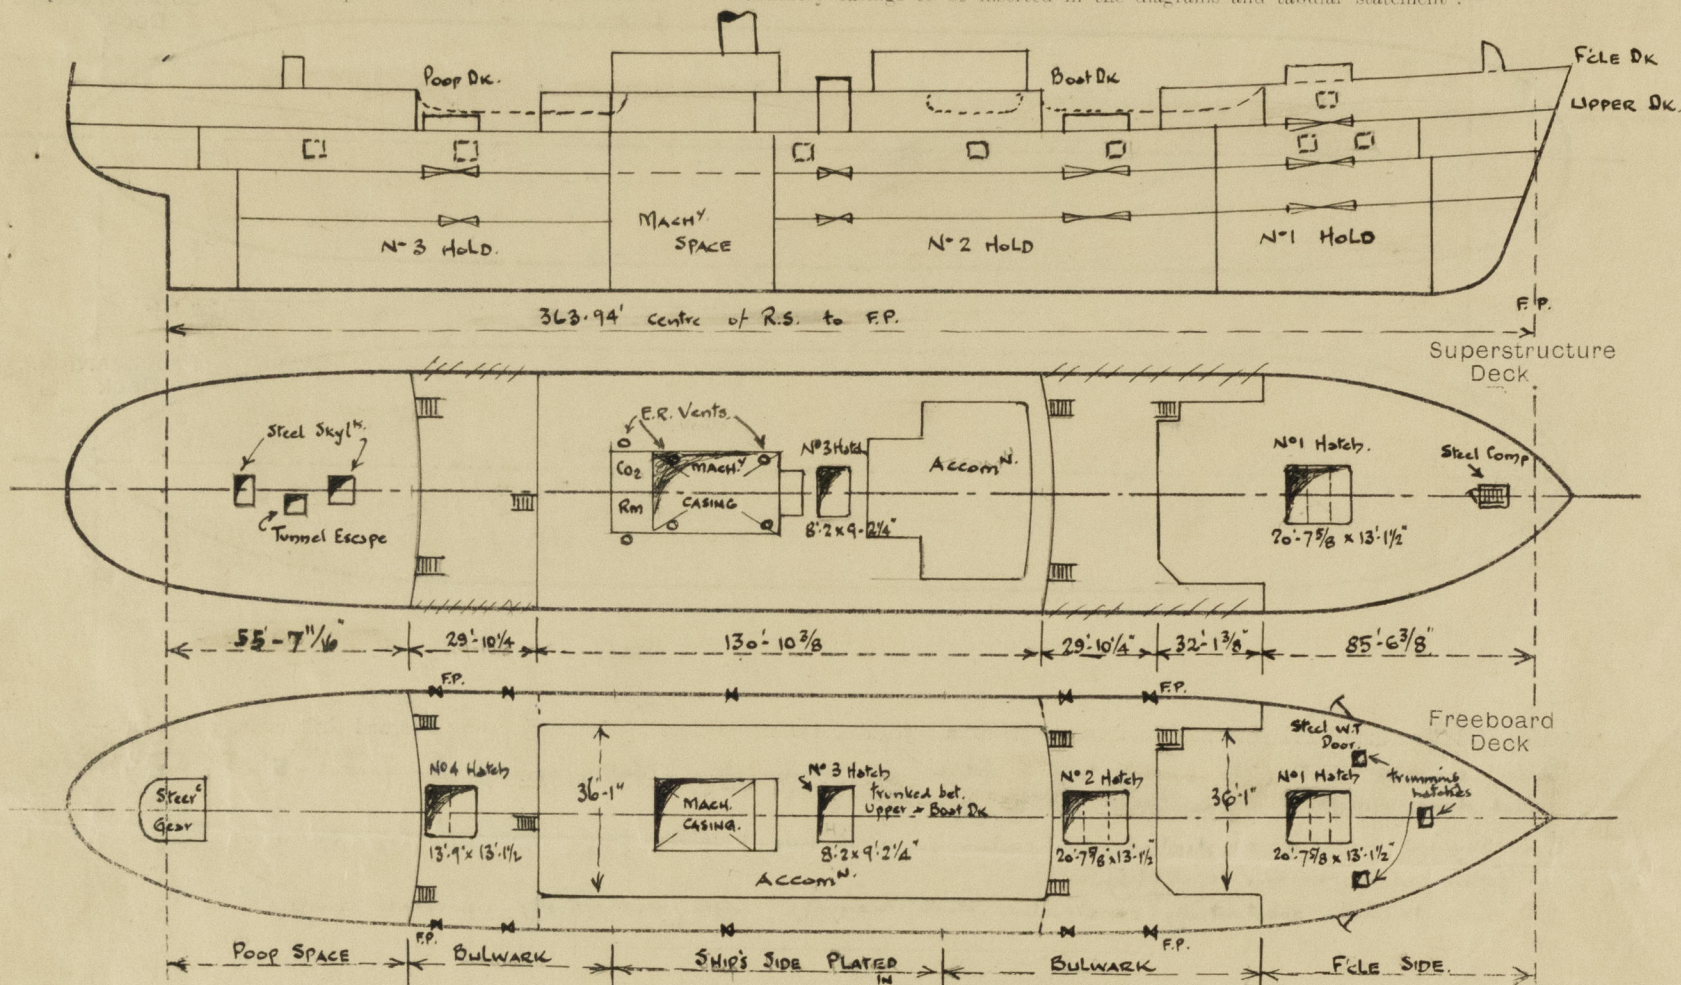 to be inserted in the diagrams and tabular statement.
Poop Dk.
Boat Dk
F'cle Dk
Upper Dk.
Mach^y
Space
No 3 Hold.
No 2 Hold
No 1 Hold
363.94' centre of R.S. to F.P.
F.P.
Superstructure
Deck
Steel Skyl^ts.
Tunnel Escape
E.R. Vents.
CO2
Rm
Mach.^y
Casing
No 3 Hatch
8'-2 x 9-2¼"
Accom^N.
No 1 Hatch.
20'-7⅝ x 13'-1½"
Steel Comp
55'-7 11/16"
29'-10¼
130'-10⅜
29'-10¼"
32'-1⅜"
85'-6⅜"
F.P.
F.P.
Freeboard
Deck
Steer^g
Gear
No 4 Hatch
13'-9" x 13'-1½
36'-1"
Mach.
Casing.
No 3 Hatch
trunked bet.
Upper & Boat Dk
8'-2 x 9'-2¼"
Accom^N.
No 2 Hatch
20'-7⅝" x 13'-1½
36'-1"
Steel W.T
Door.
No 1 Hatch
20'-7⅝ x 13'-1½"
trimming
hatches
F.P.
F.P.
Poop Space
Bulwark
Ship's Side Plated
in
Bulwark
F'cle Side.